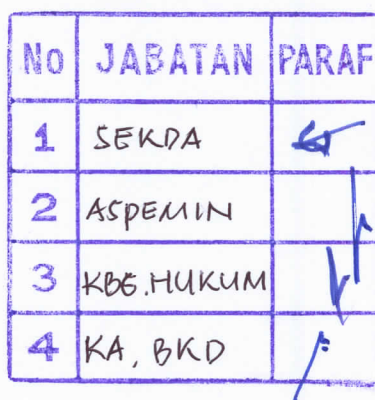 No JABATAN PARAF
1 SEKDA
2 ASPEMIN
3 KBG.HUKUM
4 KA, BKD